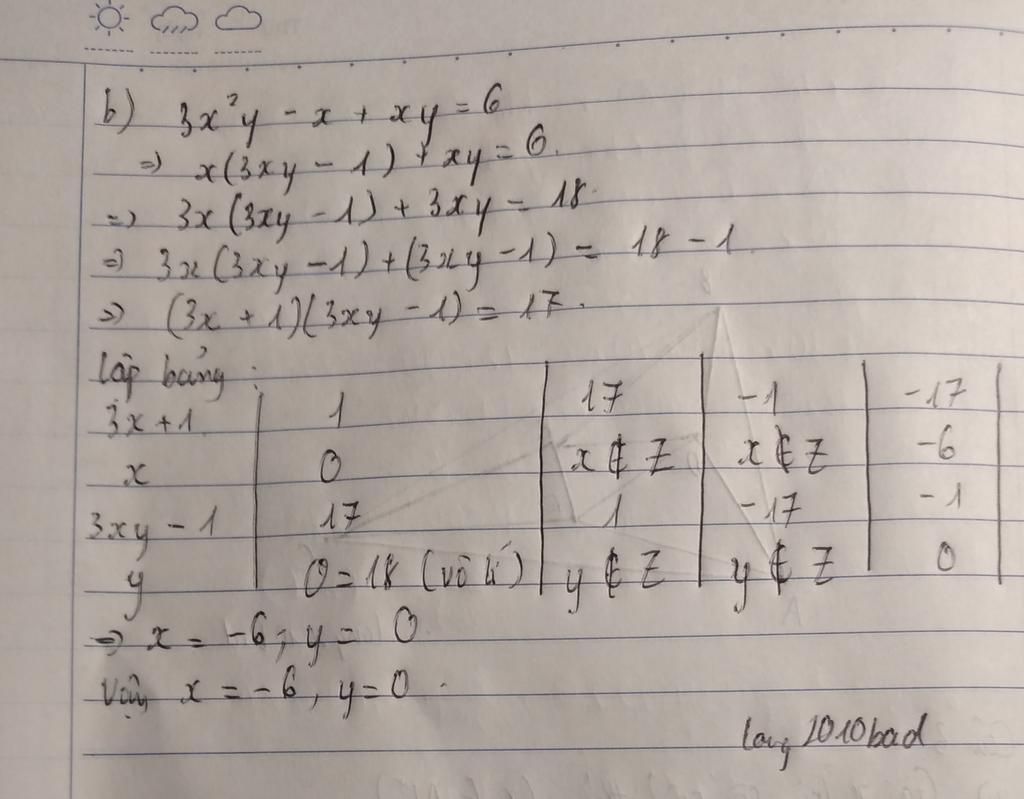 b) 3x²y - x + xy = 6
=> x(3xy - 1) + xy = 6.
=> 3x(3xy - 1) + 3xy = 18.
=> 3x(3xy - 1) + (3xy - 1) = 18 - 1
=> (3x + 1)(3xy - 1) = 17.
lập bảng :
3x + 1 | 1 | 17 | -1 | -17
x | 0 | x ∉ Z | x ∉ Z | -6
3xy - 1 | 17 | 1 | -17 | -1
y | 0 = 18 (vô lí) | y ∉ Z | y ∉ Z | 0
=> x = -6; y = 0
Vậy x = -6, y = 0.
long 2010bad